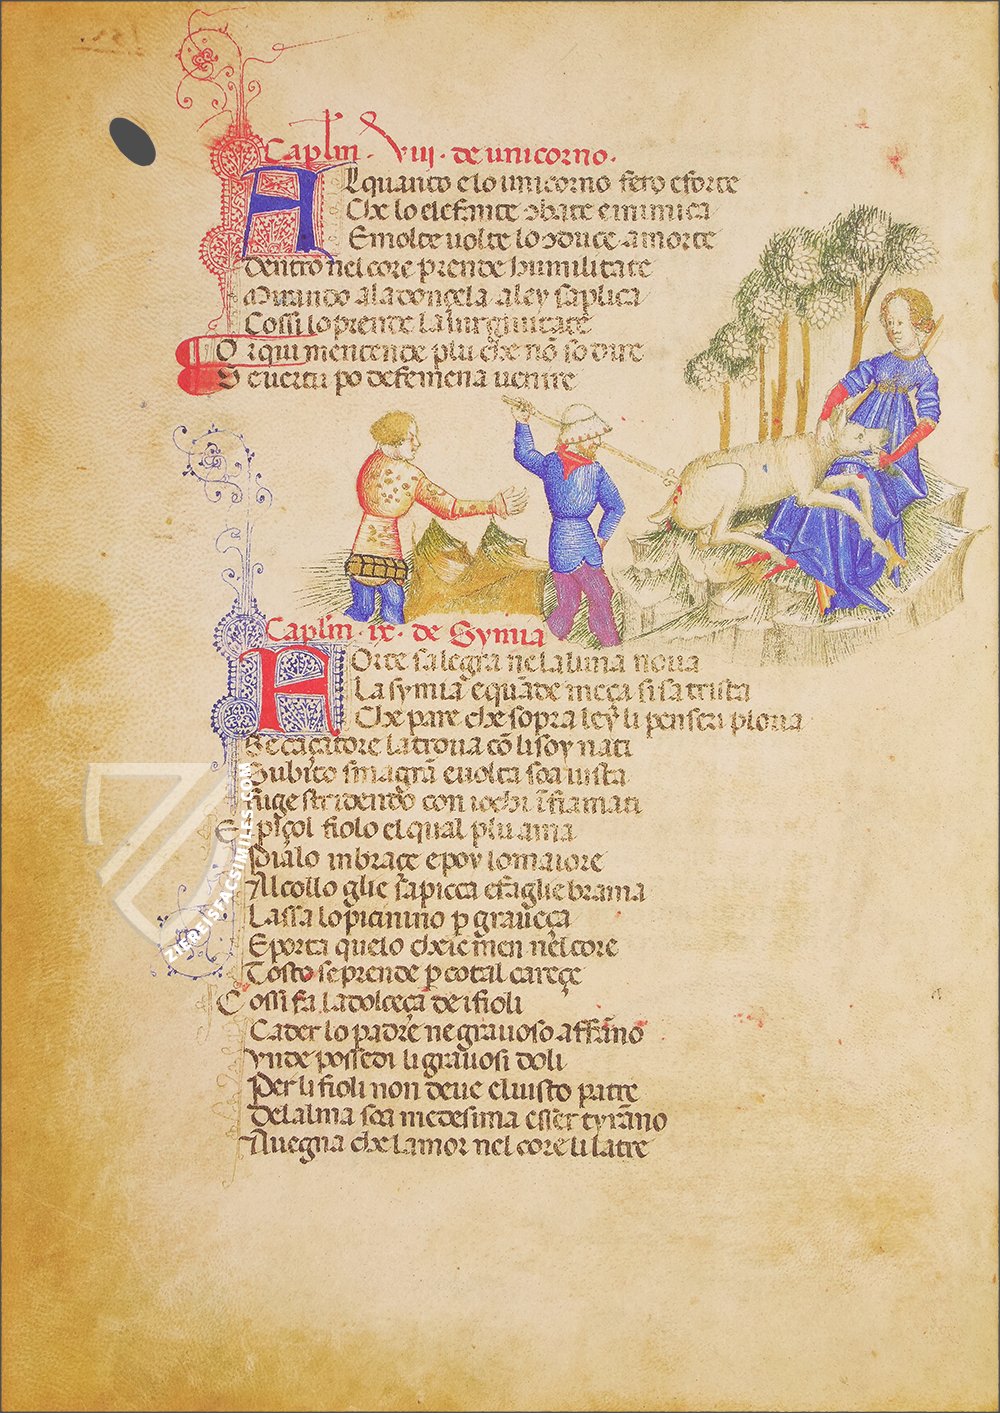 Caplm̄ . viii . de unicorno .
Alquanto e lo unicorno fero e forte
Che lo elefante ɔbate e inimica
E molte uolte lo ɔduce a morte
Dentro nel core prende humilitate
Mirando a la dongela a ley saplica
Cossi lo prende la uirginitate
Or qui me ntende plu che nō so dire
Se uertu po de femena uenire
Caplm̄ . ix . de Symia
Forte salegra ne la luna noua
La symia e quāde meça si sa trista
Che pare che sopra ley li penseri ploua
Se caçatore la troua cō li soy nati
Subito smagrā e uolta soa uista
Fuge stridendo con iochi īfiamati
El piçol fiolo el qual plu ama
Pialo in braçe e poy lo maiore
Al collo glie sapicca e faglie brama
Lassa lo picinino p graueça
E porta quelo che ie men nel core
Tosto se prende p cotal careçe
Cossi fa la dolceça de i fioli
Cader lo padre ne grauoso affāno
Vnde possedi li grauosi doli
Per li fioli non deue el iusto patre
Del alma soa medesima esser tyrāno
Auegna che lamor nel core li latre
ZIEREISFACSIMILES.COM